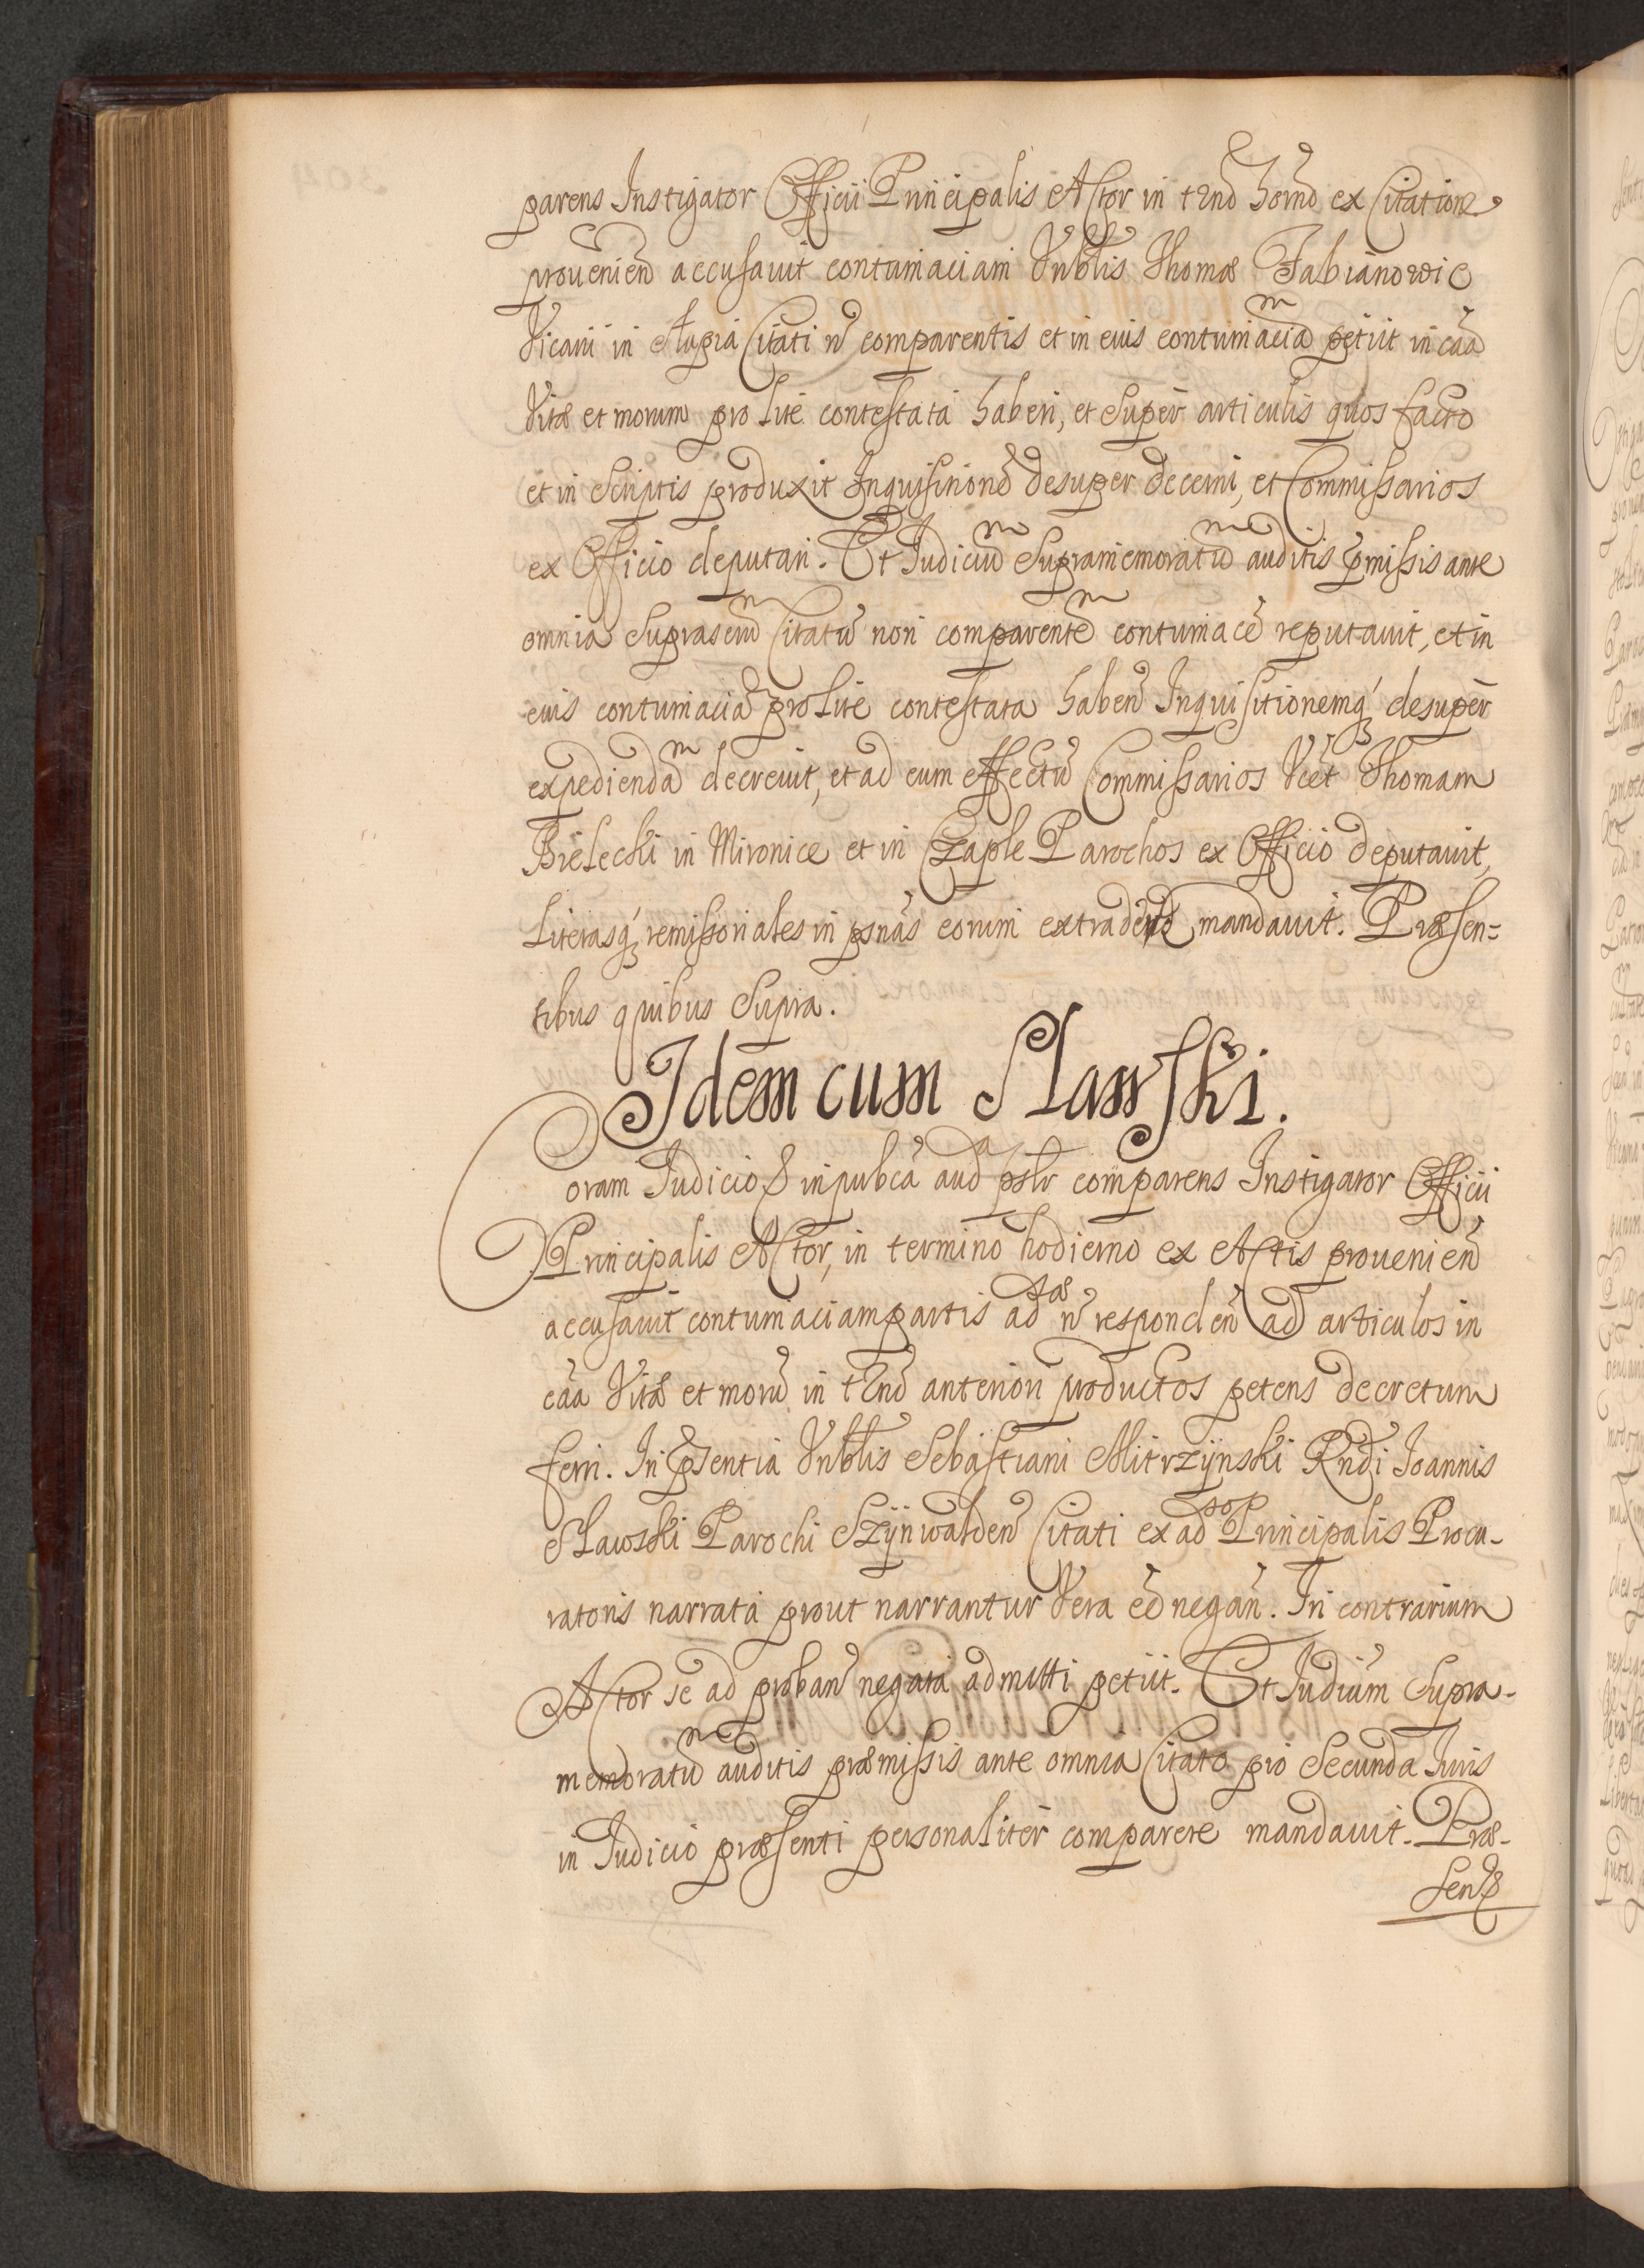 parens Instigator Officii Principalis Actor in tno horno ex Citatione
provenien accusavit contumaciam Vnblis Thomæ Fabianowic
Vicarii in Slupia Citati n comparentis et in eius contumacia petiit in caa
Vitæ et morum pro lite contestata haberi, et super articulis quos facto
et in scriptis produxit Inquisitione desuper decerni, et Commissarios
ex Officio deputari. Et Judiciu Supramemoratu auditis pmissis ante
omnia Suprascrm Citatu non comparente contumace reputavit, et in
eius contumacia pro Lite contestata haben Inquisitionemq desuper
expedienda decrevit, et ad eum effectu Commissarios Vcet Thomam
Bielecki in Mironice et in Czaple Parochos ex Officio deputavit,
Literasq remissoriales in psnas eorum extraden mandavit. Præsen=
tibus quibus Supra.
Idem cum Slawski.
Coram Judicio & in pubca aud pslr comparens Instigator Officii
Principalis Actor, in termino hodierno ex Actis provenien
accusavit contumaciam partis adtæ n responden ad articulos in
caa Vitæ et moru in tno anteriori productos petens decretum
ferri. In psentia Vnblis Sebastiani Mitrzÿnski Rndi Joannis
Slawski Parochi Szÿnwalden Citati ex adso Principalis Procu-
ratoris narrata prout narrantur Vera ee negan. In contrarium
Actor se ad proban negata admitti petiit. Et Judium Supra-
memoratu auditis præmissis ante omnia Citato pro Secunda Juris
in Judicio præsenti personaliter comparere mandavit. Præ-
sentib